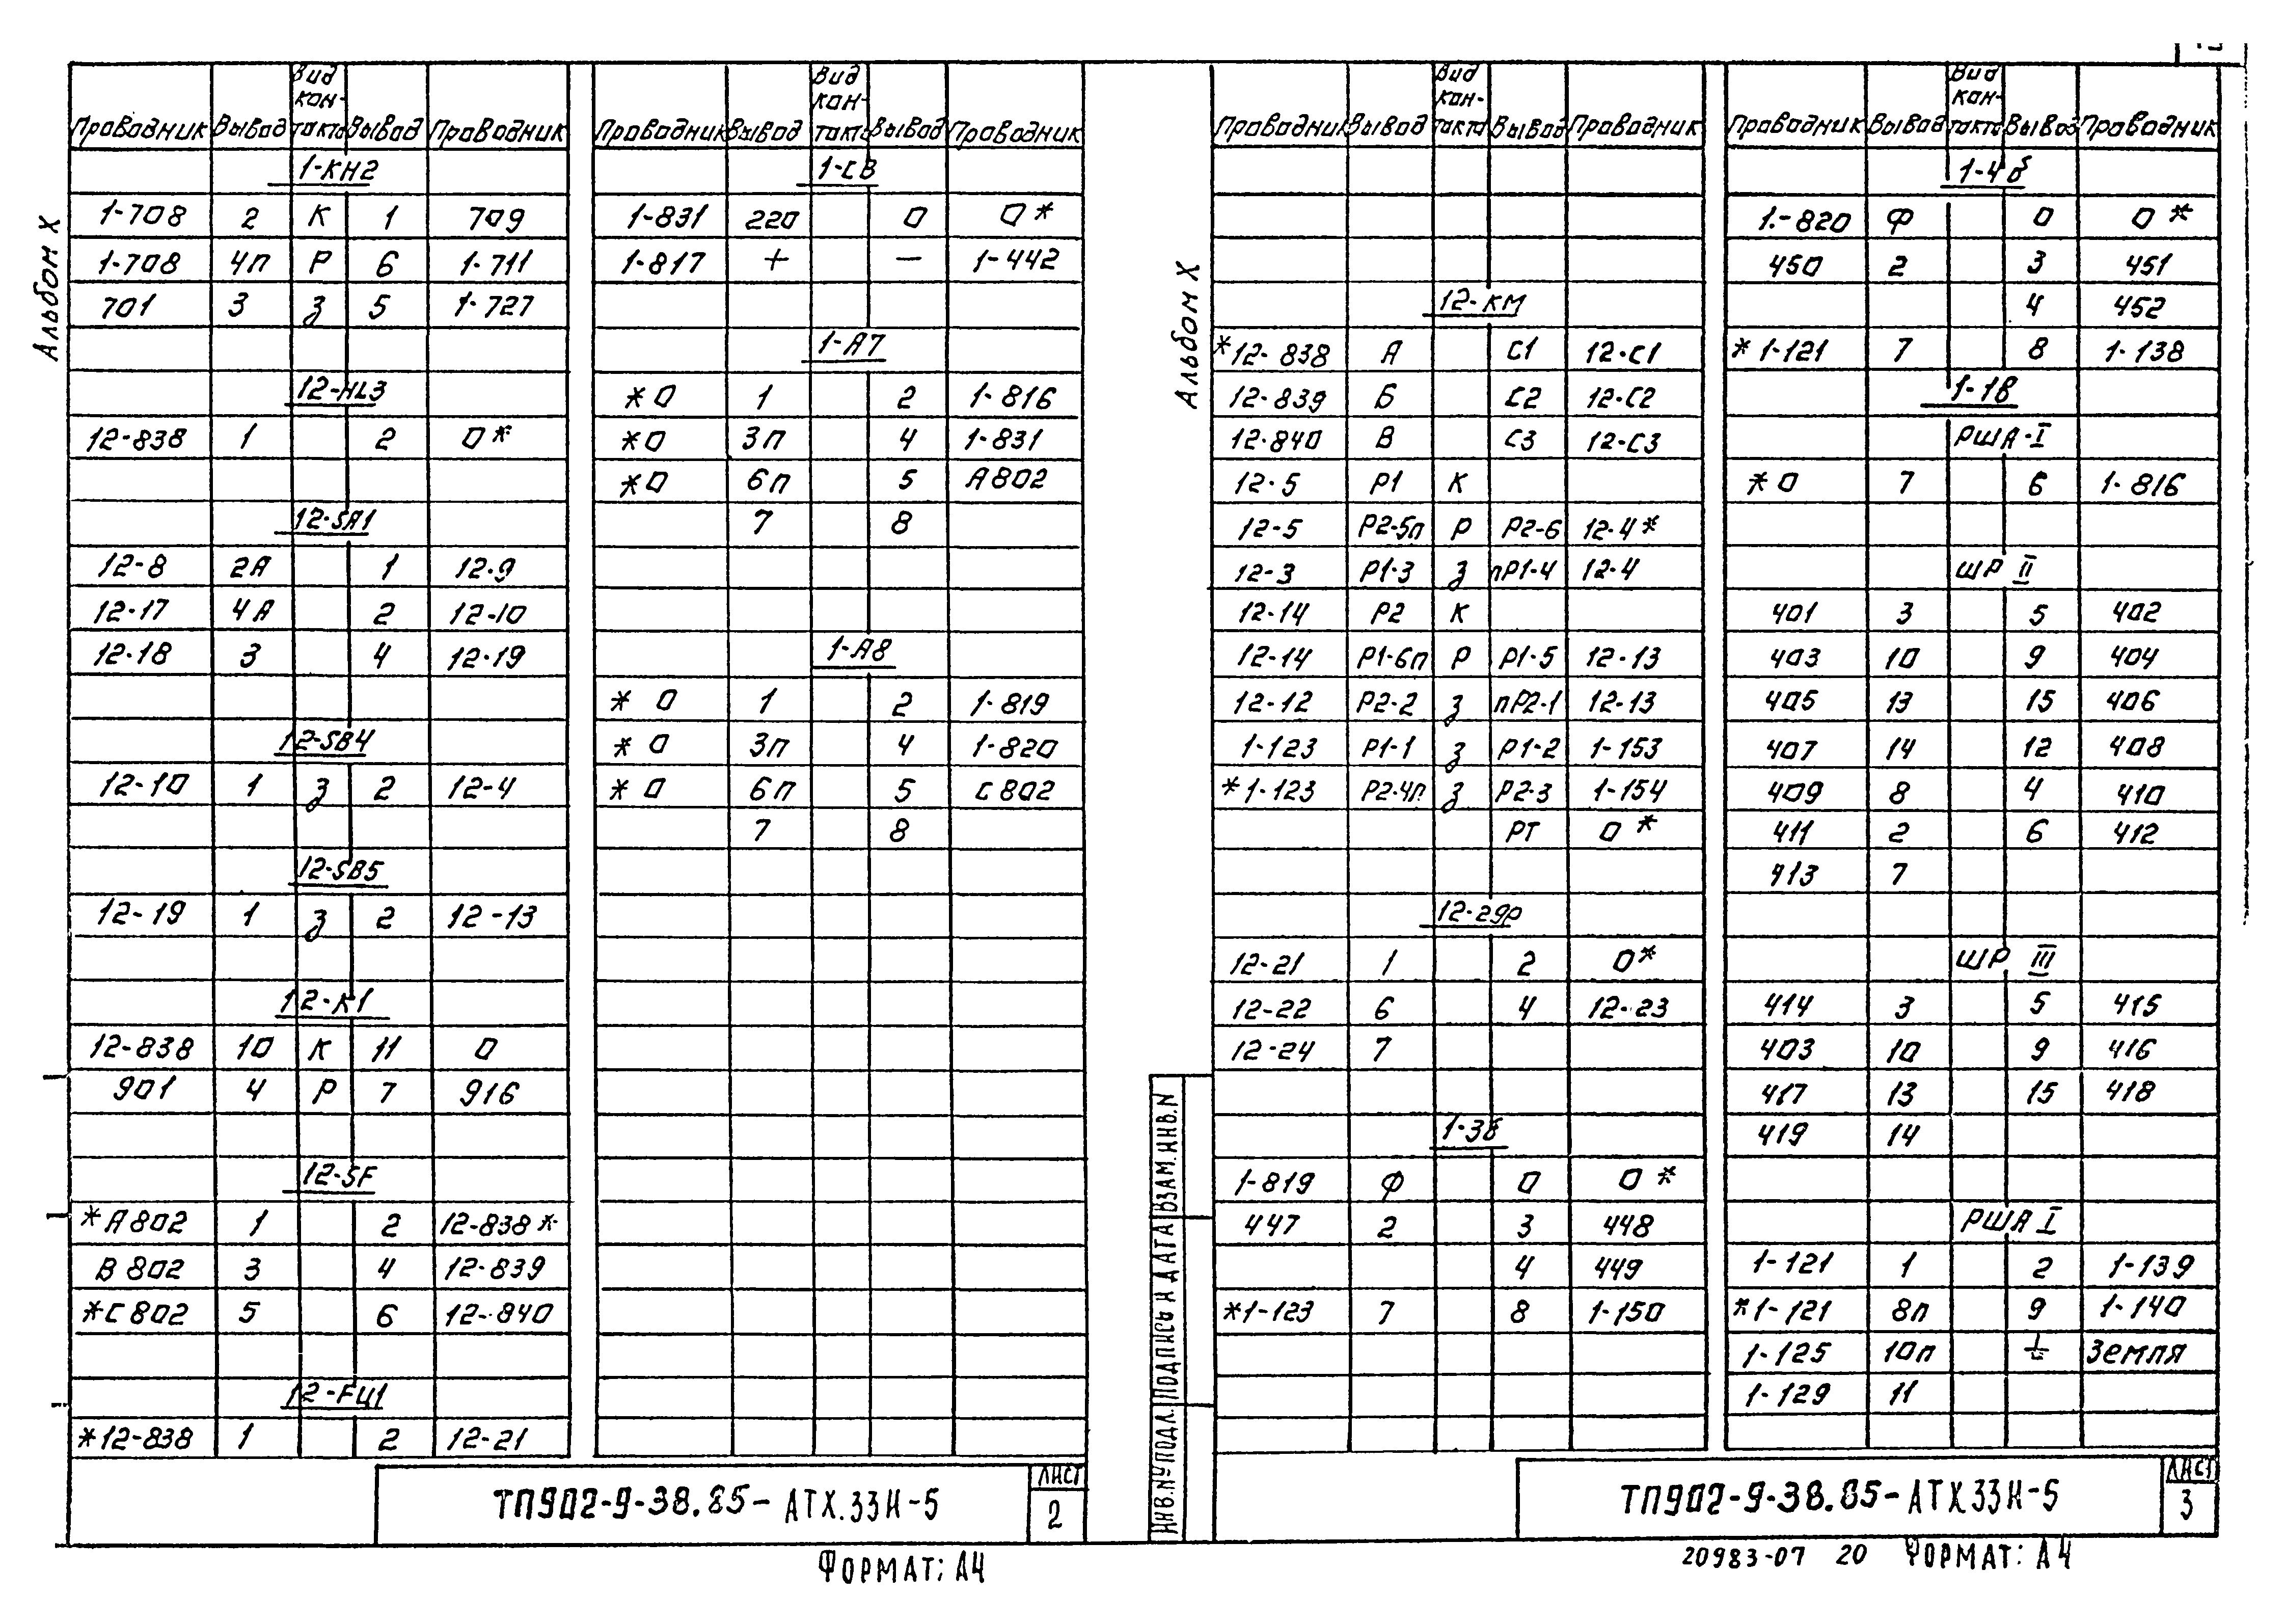 Альбом X
Проводник Вывод Вид кон- такта Вывод Проводник
1-КН2
1-708 2 К 1 709
1-708 4П Р 6 1-711
701 3 З 5 1-727
12-HL3
12-838 1 2 0*
12-SA1
12-8 2А 1 12-9
12-17 4А 2 12-10
12-18 3 4 12-19
12-SB4
12-10 1 З 2 12-4
12-SB5
12-19 1 З 2 12-13
12-К1
12-838 10 К 11 0
901 4 Р 7 916
12-SF
*А802 1 2 12-838*
В802 3 4 12-839
*С802 5 6 12-840
12-FU1
*12-838 1 2 12-21
Проводник Вывод Вид кон- такта Вывод Проводник
1-СВ
1-831 220 0 0*
1-817 + − 1-442
1-А7
*0 1 2 1-816
*0 3П 4 1-831
*0 6П 5 А802
7 8
1-А8
*0 1 2 1-819
*0 3П 4 1-820
*0 6П 5 С802
7 8
ТП902-9-38.85-АТХ.ЗЗИ-5
ЛИСТ
2
ФОРМАТ: А4
Альбом X
Проводник Вывод Вид кон- такта Вывод Проводник
12-КМ
*12-838 А С1 12-С1
12-839 Б С2 12-С2
12-840 В С3 12-С3
12-5 Р1 К
12-5 Р2-5п Р Р2-6 12-4*
12-3 Р1-3 З пР1-4 12-4
12-14 Р2 К
12-14 Р1-6п Р Р1-5 12-13
12-12 Р2-2 З пР2-1 12-13
1-123 Р1-1 З Р1-2 1-153
*1-123 Р2-4п З Р2-3 1-154
РТ 0*
12-29р
12-21 1 2 0*
12-22 6 4 12-23
12-24 7
1-3б
1-819 Ф 0 0*
447 2 3 448
4 449
*1-123 7 8 1-150
Проводник Вывод Вид кон- такта Вывод Проводник
1-4б
1-820 Ф 0 0*
450 2 3 451
4 452
*1-121 7 8 1-138
1-1в
РША-I
*0 7 6 1-816
ШР II
401 3 5 402
403 10 9 404
405 13 15 406
407 14 12 408
409 8 4 410
411 2 6 412
413 7
ШР III
414 3 5 415
403 10 9 416
417 13 15 418
419 14
РША I
1-121 1 2 1-139
*1-121 8п 9 1-140
1-125 10п ⏚ Земля
1-129 11
ИНВ.N ПОДЛ. ПОДПИСЬ И ДАТА ВЗАМ.ИНВ.N
ТП902-9-38.85-АТХ.ЗЗИ-5
ЛИСТ
3
20983-07 20 ФОРМАТ: А4